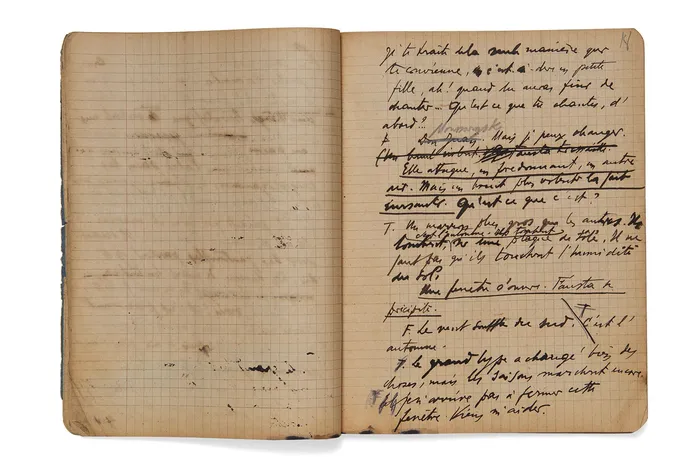 Je te traite de la seule manière qui
te convienne, c'est à dire en petite
fille, ah! quand tu auras fini de
chanter... Qu'est ce que tu chantes, d'
abord?
Moussorgsky
F Don Juan. Mais j'peux changer.
(Un bruit violent. Fausta tressaille.
Elle attaque, en fredonnant, un autre
air. Mais un bruit plus violent la fait
sursauter. Qu'est ce que c'est?
T. Un marron plus gros que les autres. Ils
c'est l'automne. Ils tombent
sur une plaque de tôle. Il ne
faut pas qu'ils touchent l'humidité
du sol.
Une fenêtre s'ouvre. Fausta se
précipite.
F. Le vent souffle du sud. T C'est l'
automne.
T. Le grand type a changé bien des
choses, mais les saisons marchent encore.
F Je n'arrive pas à fermer cette
fenêtre. Viens m'aider.